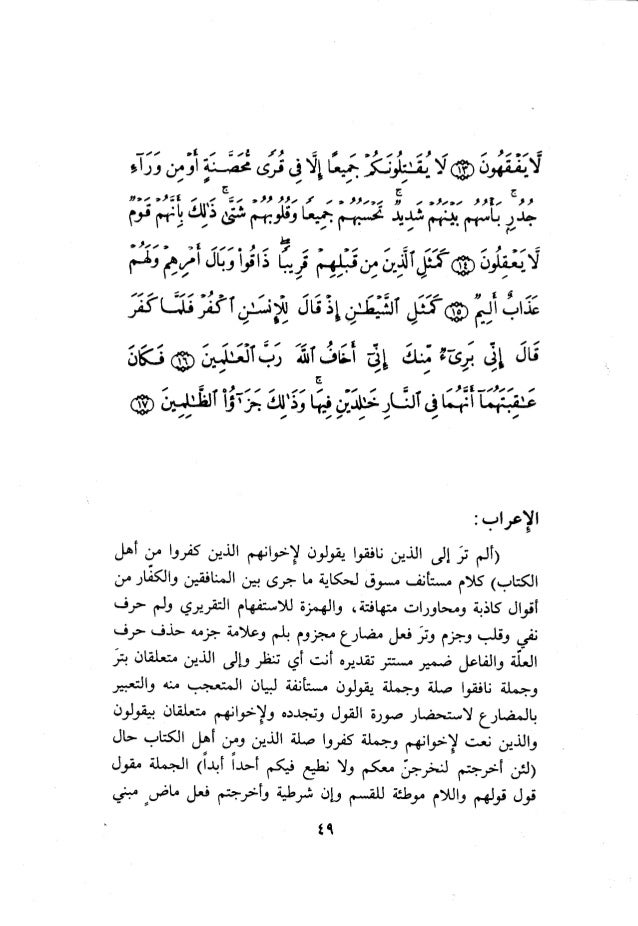 لَا يَفْقَهُونَ ﴿١٣﴾ لَا يُقَٰتِلُونَكُمْ جَمِيعًا إِلَّا فِى قُرًى مُّحَصَّنَةٍ أَوْ مِن وَرَآءِ
جُدُرٍۭ ۚ بَأْسُهُم بَيْنَهُمْ شَدِيدٌ ۚ تَحْسَبُهُمْ جَمِيعًا وَقُلُوبُهُمْ شَتَّىٰ ۚ ذَٰلِكَ بِأَنَّهُمْ قَوْمٌ
لَّا يَعْقِلُونَ ﴿١٤﴾ كَمَثَلِ ٱلَّذِينَ مِن قَبْلِهِمْ قَرِيبًا ۖ ذَاقُوا۟ وَبَالَ أَمْرِهِمْ وَلَهُمْ
عَذَابٌ أَلِيمٌ ﴿١٥﴾ كَمَثَلِ ٱلشَّيْطَٰنِ إِذْ قَالَ لِلْإِنسَٰنِ ٱكْفُرْ فَلَمَّا كَفَرَ
قَالَ إِنِّى بَرِىٓءٌ مِّنكَ إِنِّىٓ أَخَافُ ٱللَّهَ رَبَّ ٱلْعَٰلَمِينَ ﴿١٦﴾ فَكَانَ
عَٰقِبَتَهُمَآ أَنَّهُمَا فِى ٱلنَّارِ خَٰلِدَيْنِ فِيهَا ۚ وَذَٰلِكَ جَزَٰٓؤُا۟ ٱلظَّٰلِمِينَ ﴿١٧﴾
الإعراب :
(ألم ترَ إلى الذين نافقوا يقولون لإخوانهم الذين كفروا من أهل
الكتاب) كلام مستأنف مسوق لحكاية ما جرى بين المنافقين والكفّار من
أقوال كاذبة ومحاورات متهافتة، والهمزة للاستفهام التقريري ولم حرف
نفي وقلب وجزم وترَ فعل مضارع مجزوم بلم وعلامة جزمه حذف حرف
العلّة والفاعل ضمير مستتر تقديره أنت أي تنظر وإلى الذين متعلقان بترَ
وجملة نافقوا صلة وجملة يقولون مستأنفة لبيان المتعجب منه والتعبير
بالمضارع لاستحضار صورة القول وتجدده ولإخوانهم متعلقان بيقولون
والذين نعت لإخوانهم وجملة كفروا صلة الذين ومن أهل الكتاب حال
(لئن أخرجتم لنخرجنّ معكم ولا نطيع فيكم أحداً أبداً) الجملة مقول
قول قولهم واللام موطئة للقسم وإن شرطية وأخرجتم فعل ماضٍ مبني
٤٩